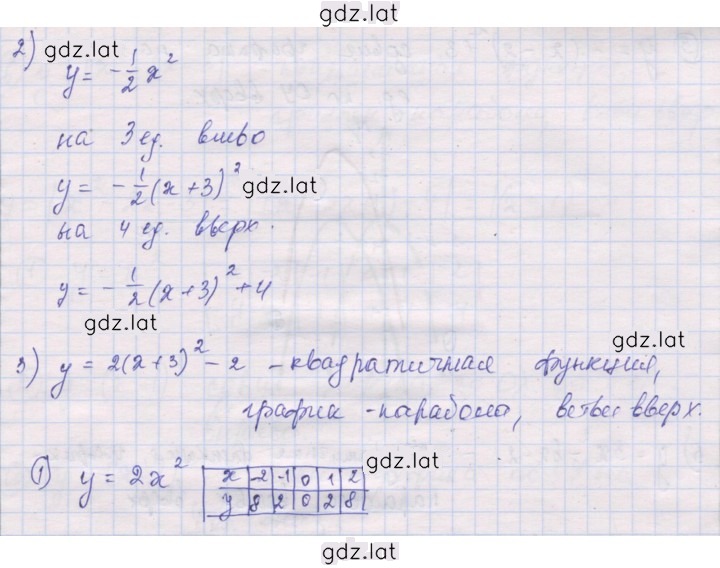 gdz.lat
2) gdz.lat
y = -1/2 x²
на 3 ед. влево
y = -1/2(x+3)² gdz.lat
на 4 ед. вверх.
y = -1/2(x+3)²+4
gdz.lat
gdz.lat
3) y = 2(x+3)²-2 - квадратичная функция,
график - парабола, ветви вверх.
gdz.lat
① y = 2x²
x -2 -1 0 1 2
y 8 2 0 2 8
gdz.lat